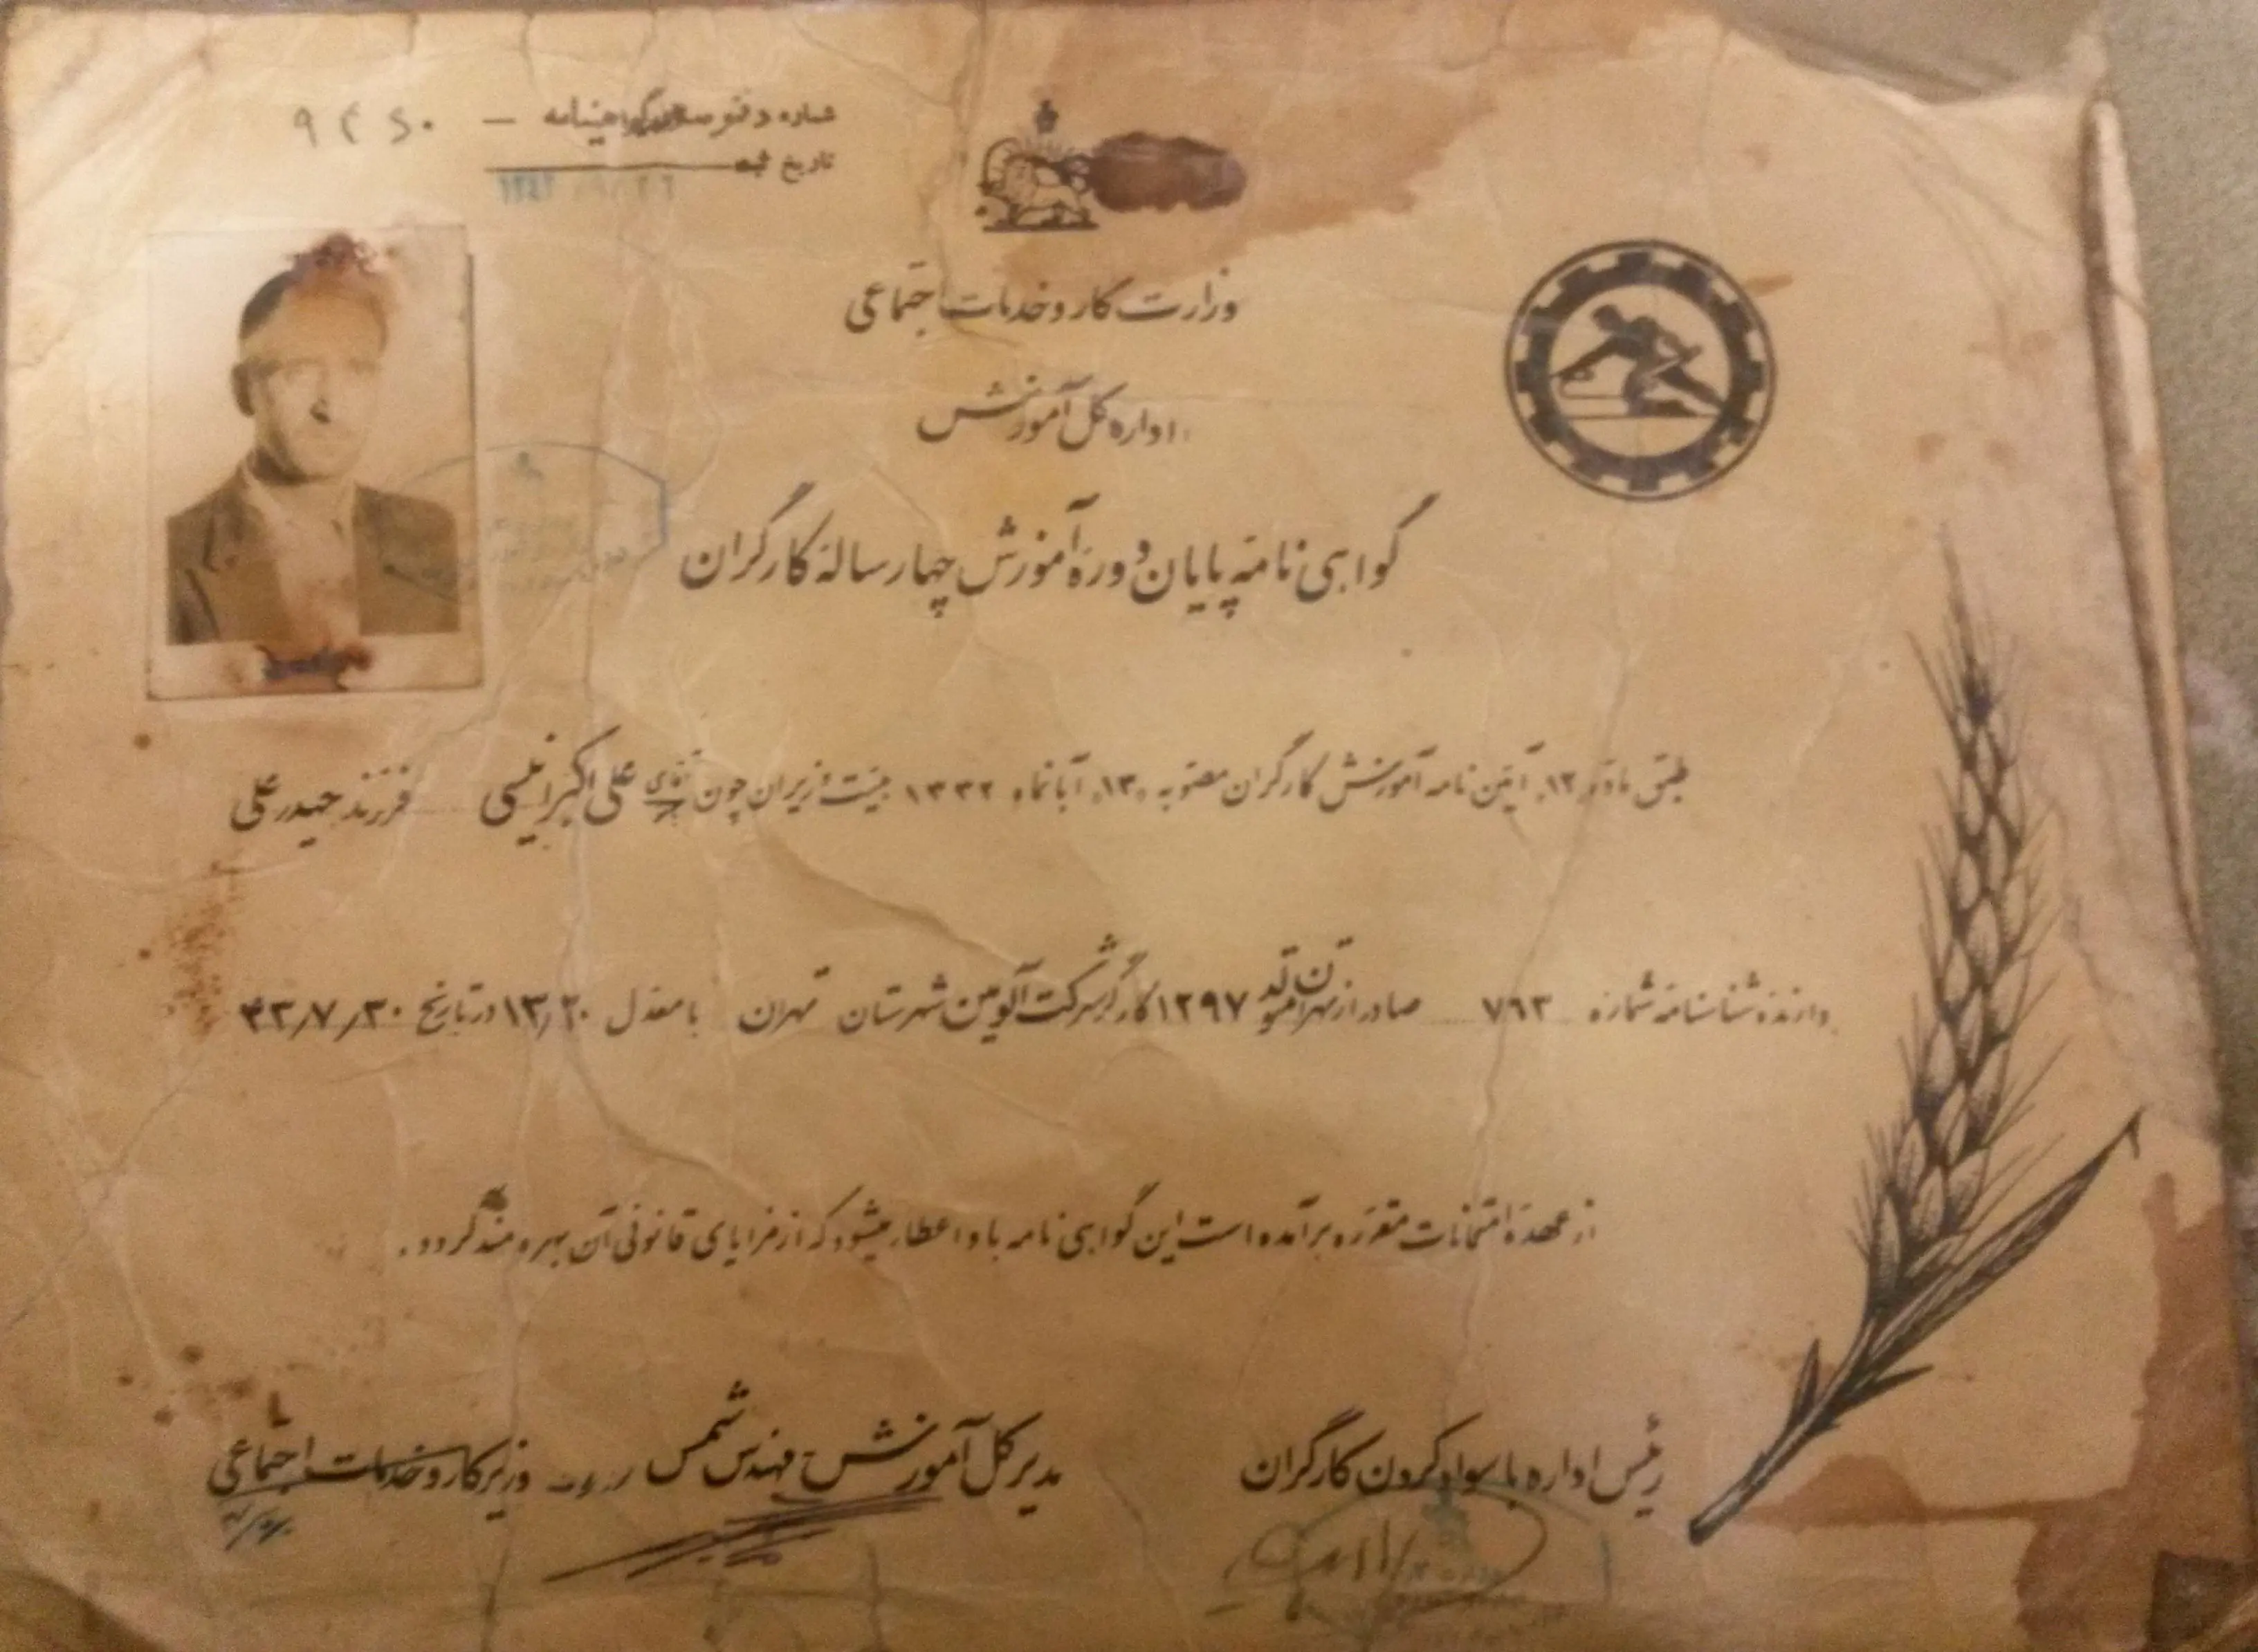 شماره دفتر گواهینامه — ۹۴۶۰
تاریخ ثبت
وزارت کار و خدمات اجتماعی
اداره کل آموزش
گواهی نامه پایان دوره آموزش چهار ساله کارگران
طبق ماده ۱۲ آئین نامه آموزش کارگران مصوبه ۱۳ آبانماه ۱۳۳۲ هیئت وزیران چون آقای علی اکبر انیسی فرزند حیدر علی
دارنده شناسنامه شماره ۷۹۳ صادر از تهران متولد ۱۲۹۷ کارگر شرکت آلومین شهرستان تهران با معدل ۱۳/۲۰ در تاریخ ۴۳/۷/۳۰
از عهده امتحانات مقرره برآمده است این گواهی نامه باو اعطاء میشود که از مزایای قانونی آن بهره مند گردد.
رئیس اداره با سواد کردن کارگران
مدیر کل آموزش مهندس شمس
وزیر کار و خدمات اجتماعی